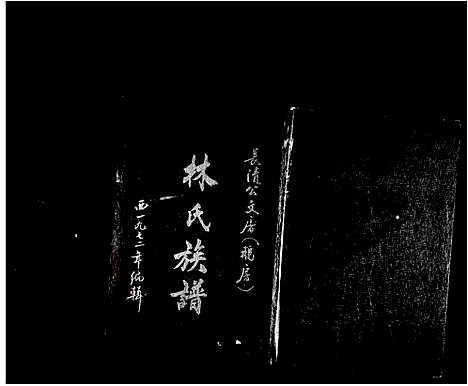 長清公文房(福房)
林氏族譜
西一九七二年編輯